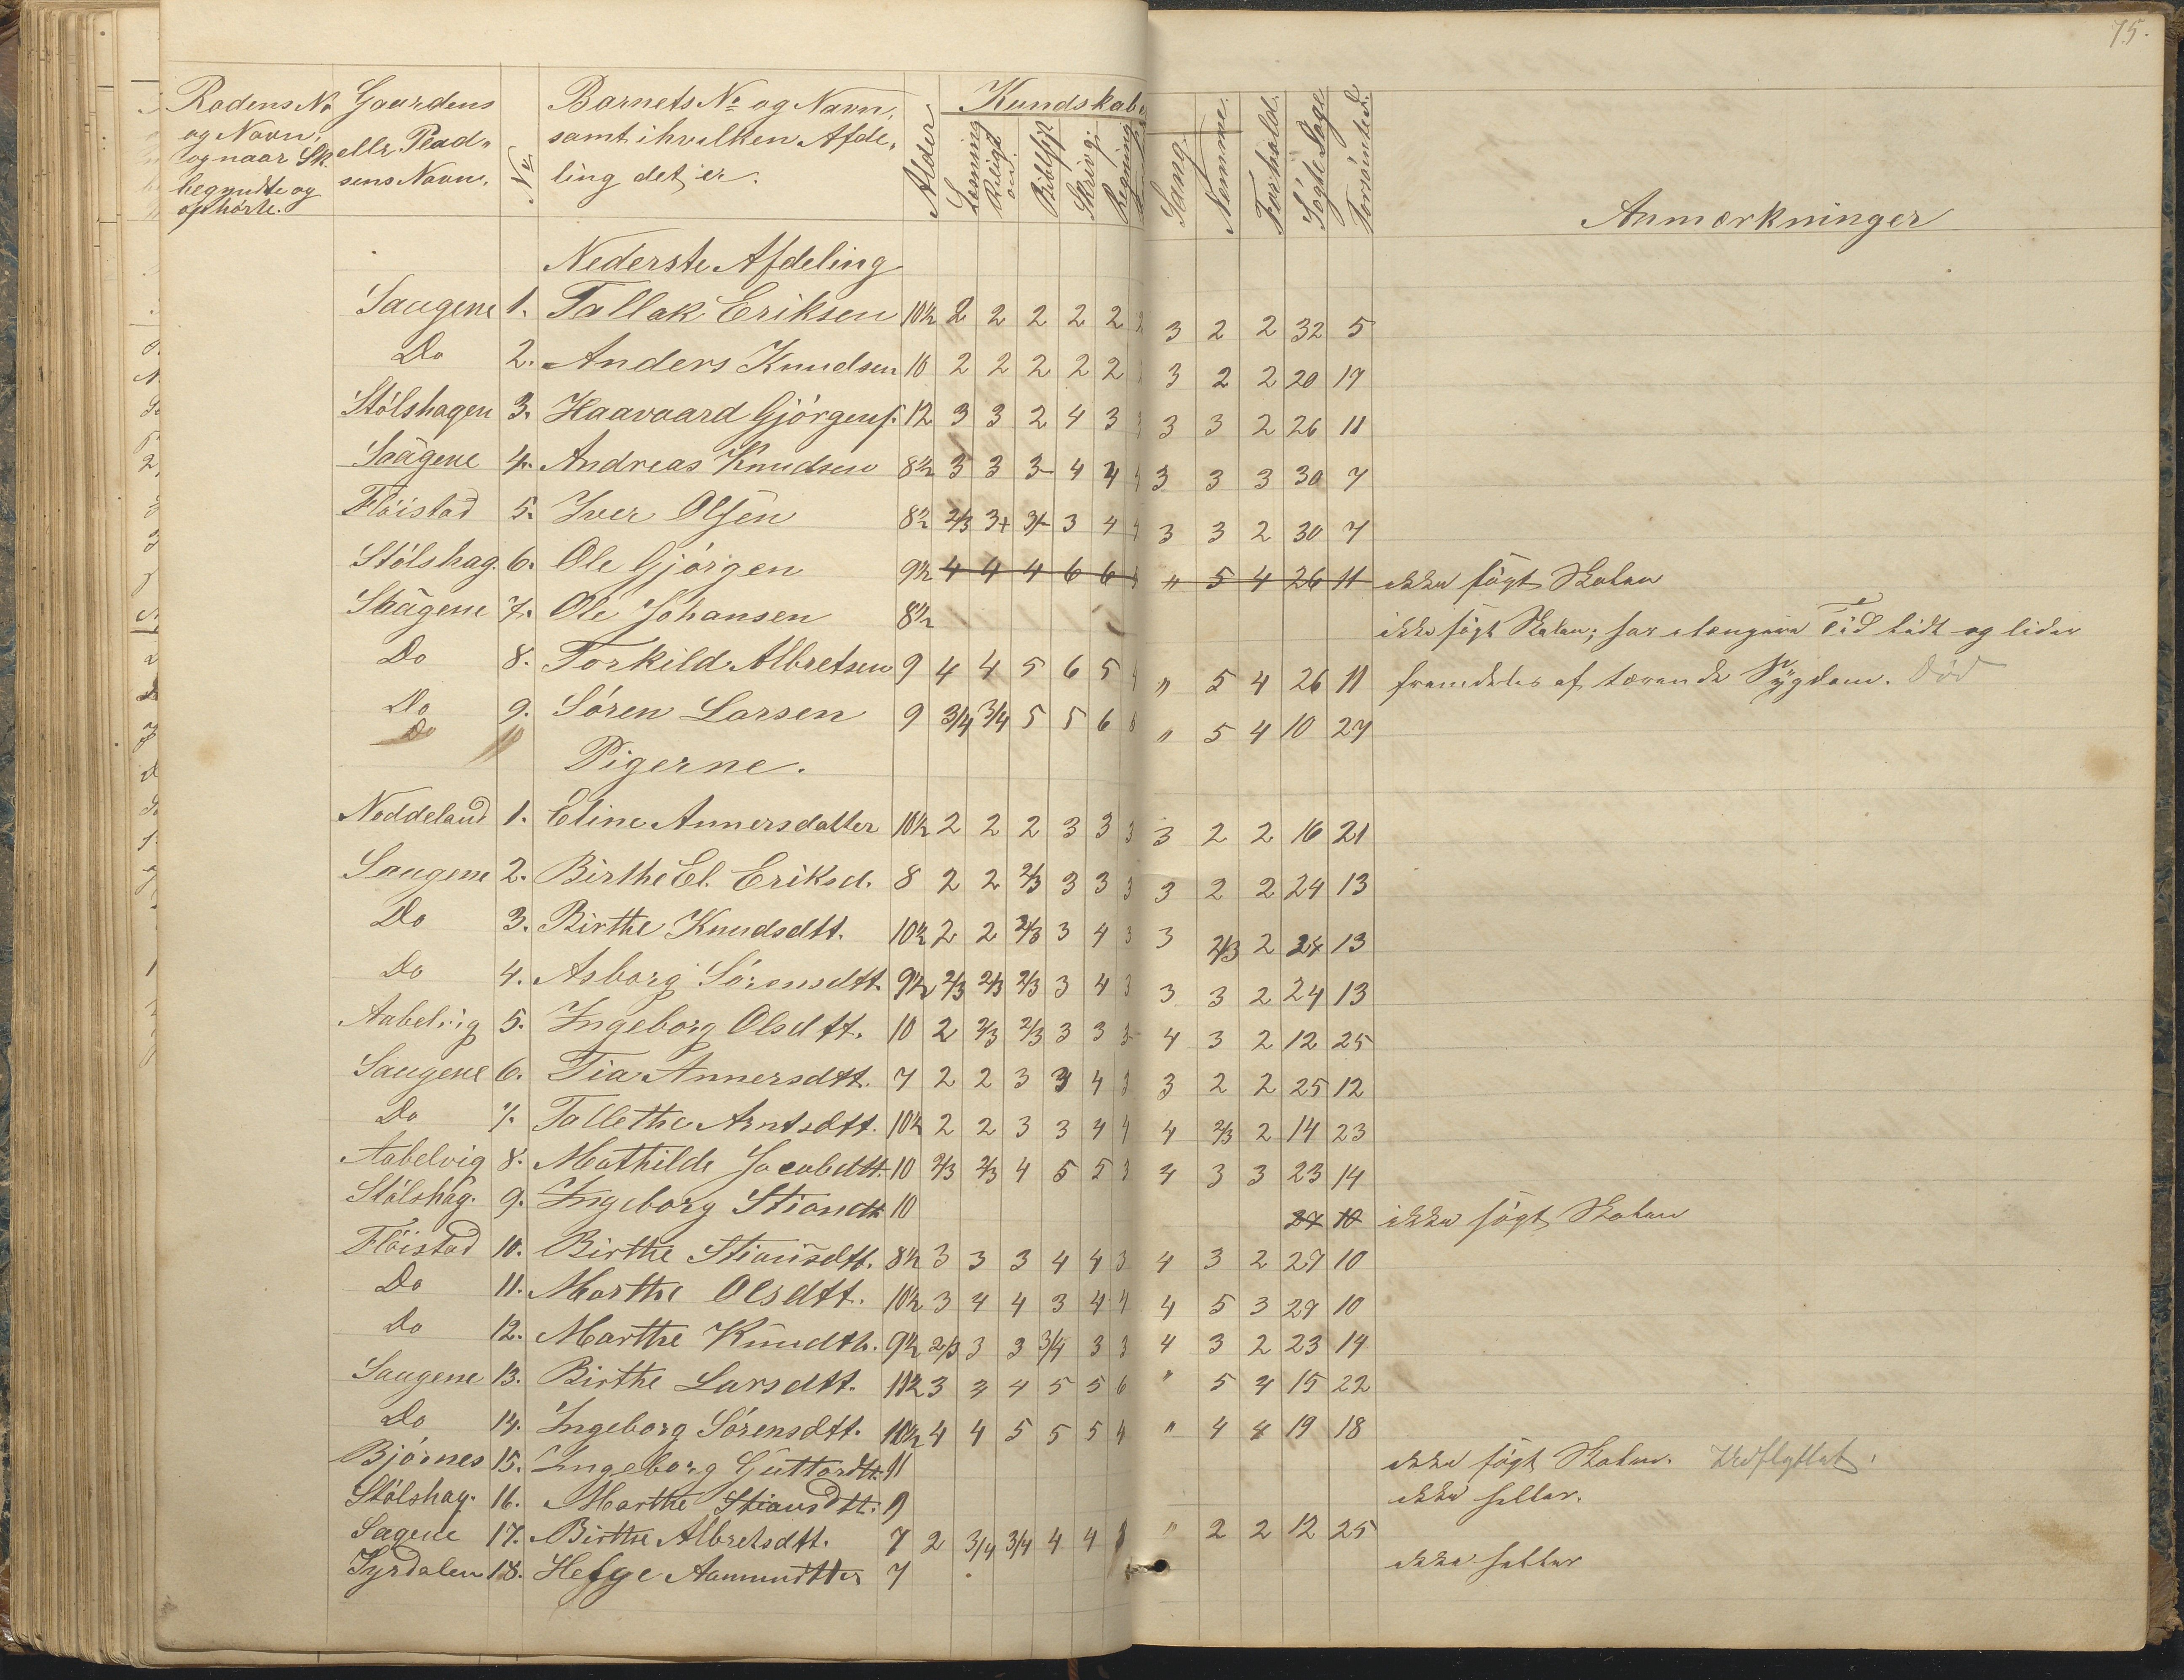 75.
Rodens No og Navn, og naar Sk. begyndte og ophørte.
Gaardens eller Plad- sens Navn.
No.
Barnets No og Navn, samt i hvilken Afde- ling det er.
Alder
Kundskab
Læsning
Religi on.
Biblhji
Skrivg:
Regning
Sang.
Nemme.
Forhold.
Søgte Dage
Forsømte D.
Anmærkninger
Nederste Afdeling
Saugene 1. Tallak Eriksen 10½ 2 2 2 2 2 2 3 2 2 32 5
Do 2. Anders Knudsen 10 2 2 2 2 2 3 2 2 20 17
Stølshagen 3. Haavaard Gjørgens. 12 3 3 2 4 3 3 3 3 2 26 11
Saagene 4. Andreas Knudsen 8½ 3 3 3- 4 4 4 3 3 3 30 7
Fløistad 5. Iver Olsen 8½ 2/3 3+ 3/- 3 4 4 3 3 2 30 7
Stølshag. 6. Ole Gjørgen 9½ 4 4 4 6 6 " 5 4 26 11 ikke søgt Skolen
Saagene 7. Ole Johansen 8½ ikke søgt Skolen; har længere Tid lidt og lider
Do 8. Torkild Albretsen 9 4 4 5 6 5 4 " 5 4 26 11 fremdeles af tærende Sygdom. Død
Do 9. Søren Larsen 9 3/4 3/4 5 5 6 6 " 5 4 10 27
Do 10
Pigerne.
Noddeland 1. Eline Annersdatter 10½ 2 2 2 3 3 3 3 2 2 16 21
Saugene 2. Birthe El. Eriksd. 8 2 2 2/3 3 3 3 3 2 2 24 13
Do 3. Birthe Knudsdtt. 10½ 2 2 2/3 3 4 3 3 2/3 2 24 13
Do 4. Asborg Sørensdtt. 9½ 2/3 2/3 2/3 3 4 3 3 3 2 24 13
Aabelvig 5. Ingeborg Olsdtt. 10 2 2/3 2/3 3 3 3- 4 3 2 12 25
Saugene 6. Tia Annersdtt. 7 2 2 3 3 4 3 3 2 2 25 12
Do 7. Tallethe Arntsdtt. 10½ 2 2 3 3 4 4 4 2/3 2 14 23
Aabelvig 8. Mathilde Jacobdtt. 10 2/3 2/3 4 5 5 3 4 3 3 23 14
Stølshag. 9. Ingeborg Stiandt 10 27 10 ikke søgt Skolen
Fløistad 10. Birthe Stiansdtt. 8½ 3 3 3 4 4 3 4 3 2 27 10
Do 11. Marthe Olsdtt. 10½ 3 4 4 3 4 4 4 5 3 27 10
Do 12. Marthe Knudth. 9½ 2/3 3 3 3/4 3 3 4 3 2 23 14
Saugene 13. Birthe Larsdtt. 11½ 3 4 4 5 5 6 " 5 4 15 22
Do 14. Ingeborg Sørensdtt. 10½ 4 4 5 5 5 4 " 4 4 19 18
Bjørnes 15. Ingeborg Guttordtt. 11 ikke søgt Skolen. Udflyttet.
Stølshag. 16. Marthe Stiansdtt. 9 ikke heller.
Sagene 17. Birthe Albretsdtt. 7 2 3/4 3/4 4 4 " 2 2 12 25
Fyrdalen 18. Helge Aamundtter 7 ikke heller